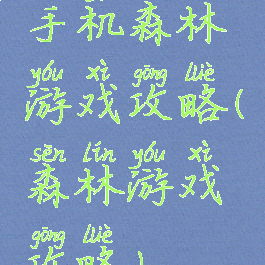 手机森林
yóu xì gōng lüè
游戏攻略(
sēn lín yóu xì
森林游戏
gōng lüè
攻略)